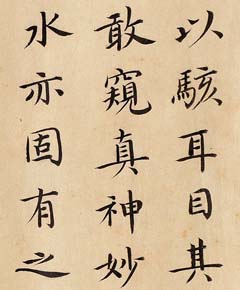 以駭耳目其
敢窺真神妙
水亦固有之